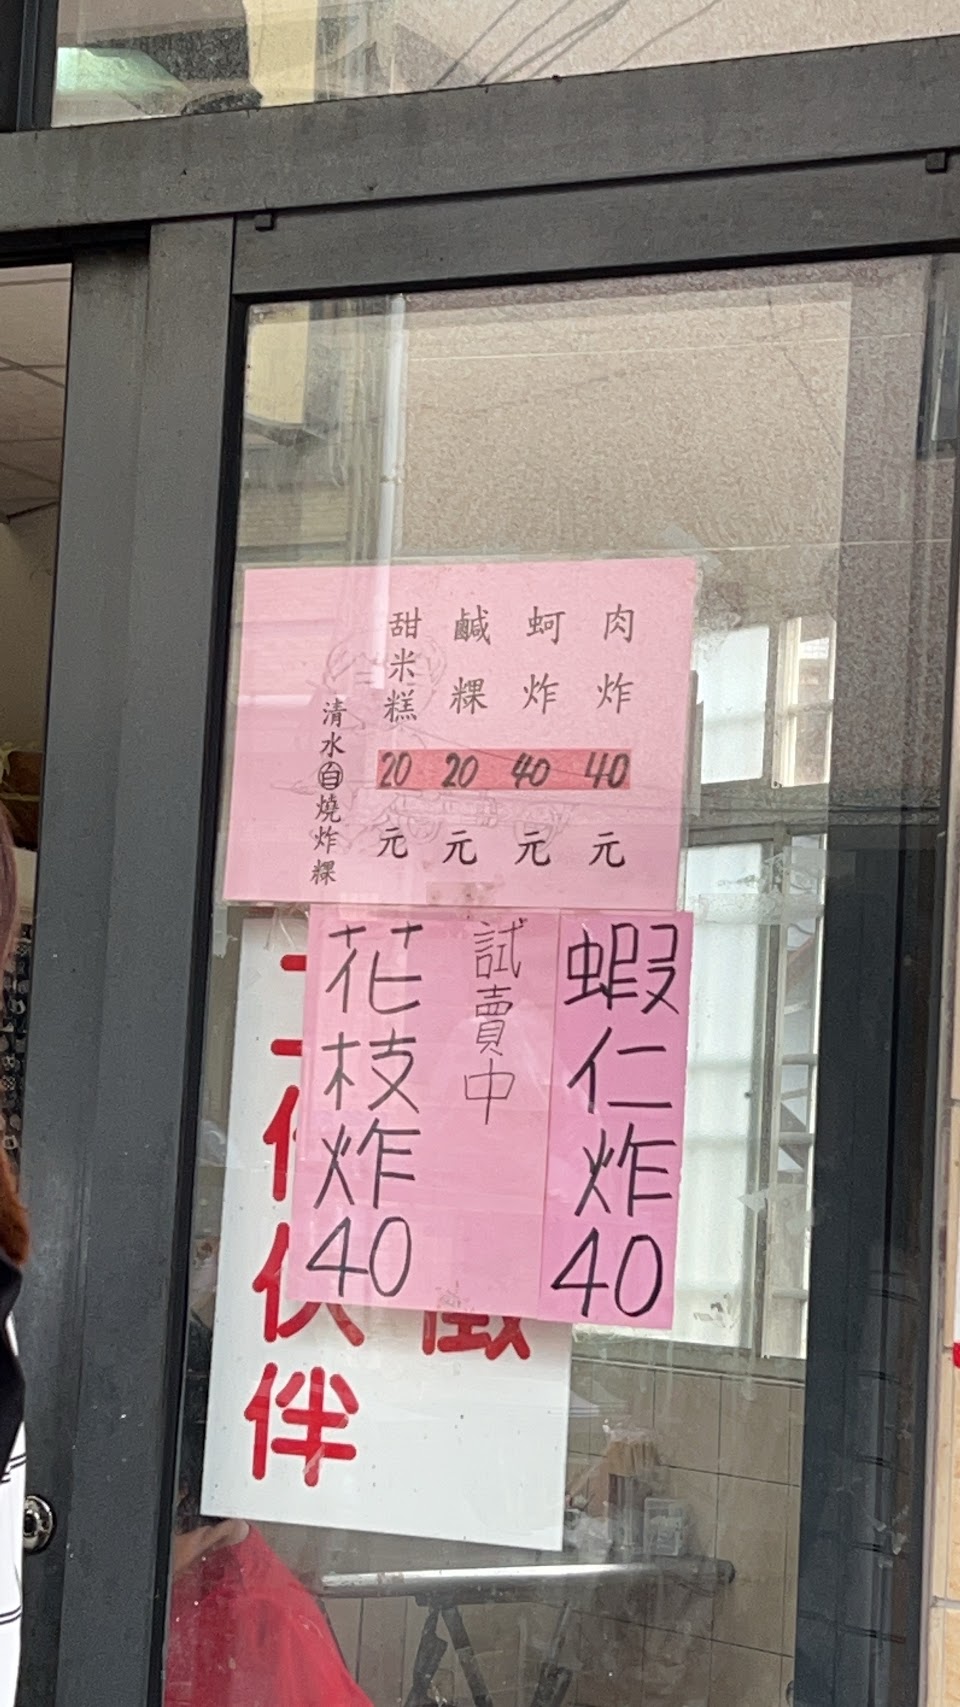 肉炸40元
蚵炸40元
鹹粿20元
甜米糕20元
清水自燒炸粿
蝦仁炸40
試賣中
花枝炸40
徵
伙伴